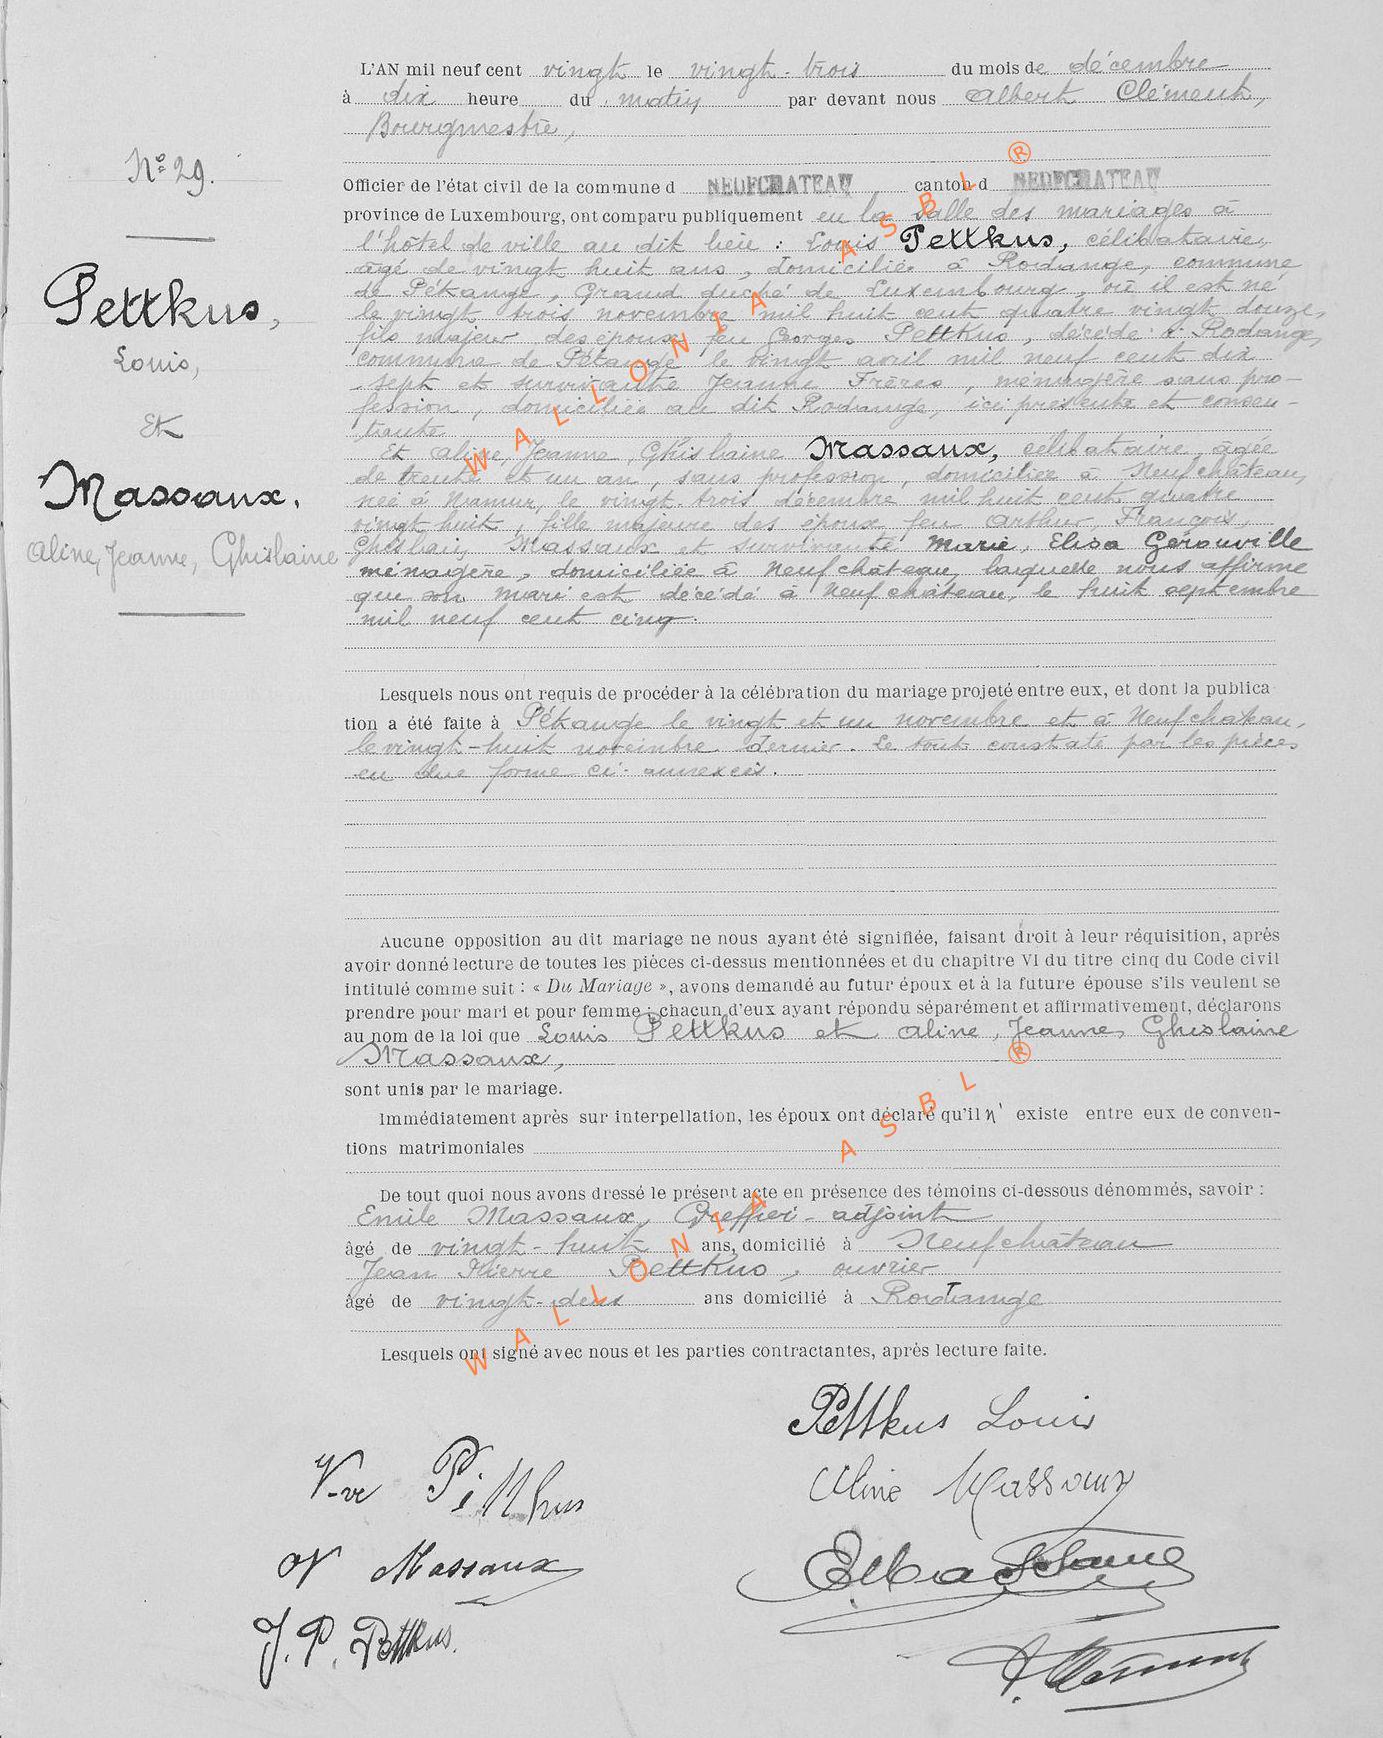 L'AN mil neuf cent vingt le vingt-trois du mois de décembre
à dix heure du matin par devant nous Albert Clément,
Bourgmestre,
Nº 29.
Officier de l'état civil de la commune d NEUFCHATEAU, canton d NEUFCHATEAU
province de Luxembourg, ont comparu publiquement en la salle des mariages à
l'hôtel de ville au dit lieu : Louis Pettkus, célibataire,
âgé de vingt huit ans, domicilié à Rodange, commune
de Pétange, Grand duché de Luxembourg, où il est né
le vingt trois novembre mil huit cent quatre vingt douze,
fils majeur des époux feu Georges Pettkus, décédé à Rodange,
commune de Pétange le vingt avril mil neuf cent dix
sept et survivante Jeanne Frères, ménagère sans pro-
fession, domiciliée au dit Rodange, ici présente et consen-
tante
Et Aline, Jeanne, Ghislaine Massaux, célibataire, âgée
de trente et un an, sans profession, domiciliée à Neufchâteau,
née à Namur, le vingt-trois décembre mil huit cent quatre
vingt huit, fille majeure des époux feu Arthur, François,
Ghislain, Massaux et survivante Marie, Elisa Gérouville
ménagère, domiciliée à Neufchâteau, laquelle nous affirme
que son mari est décédé à Neufchâteau, le huit septembre
mil neuf cent cinq.
Pettkus,
Louis,
Et
Massaux,
Aline, Jeanne, Ghislaine
Lesquels nous ont requis de procéder à la célébration du mariage projeté entre eux, et dont la publica
tion a été faite à Pétange le vingt et un novembre et à Neufchateau,
le vingt-huit novembre dernier. Le tout constaté par les pièces
en due forme ci-annexées.
Aucune opposition au dit mariage ne nous ayant été signifiée, faisant droit à leur réquisition, après
avoir donné lecture de toutes les pièces ci-dessus mentionnées et du chapitre VI du titre cinq du Code civil
intitulé comme suit : « Du Mariage », avons demandé au futur époux et à la future épouse s'ils veulent se
prendre pour mari et pour femme ; chacun d'eux ayant répondu séparément et affirmativement, déclarons
au nom de la loi que Louis Pettkus et Aline, Jeanne, Ghislaine
Massaux,
sont unis par le mariage.
Immédiatement après sur interpellation, les époux ont déclaré qu'il n' existe entre eux de conven-
tions matrimoniales
De tout quoi nous avons dressé le présent acte en présence des témoins ci-dessous dénommés, savoir :
Emile Massaux, Greffier-adjoint
âgé de vingt-huit ans, domicilié à Neufchâteau
Jean Pierre Pettkus, ouvrier
âgé de vingt-deux ans domicilié à Rodange
Lesquels ont signé avec nous et les parties contractantes, après lecture faite.
Pettkus Louis
V-ve Pettkus
Aline Massaux
Massaux
J. P. Pettkus.
A. Clément
WALLONIA ASBL ®
WALLONIA ASBL ®